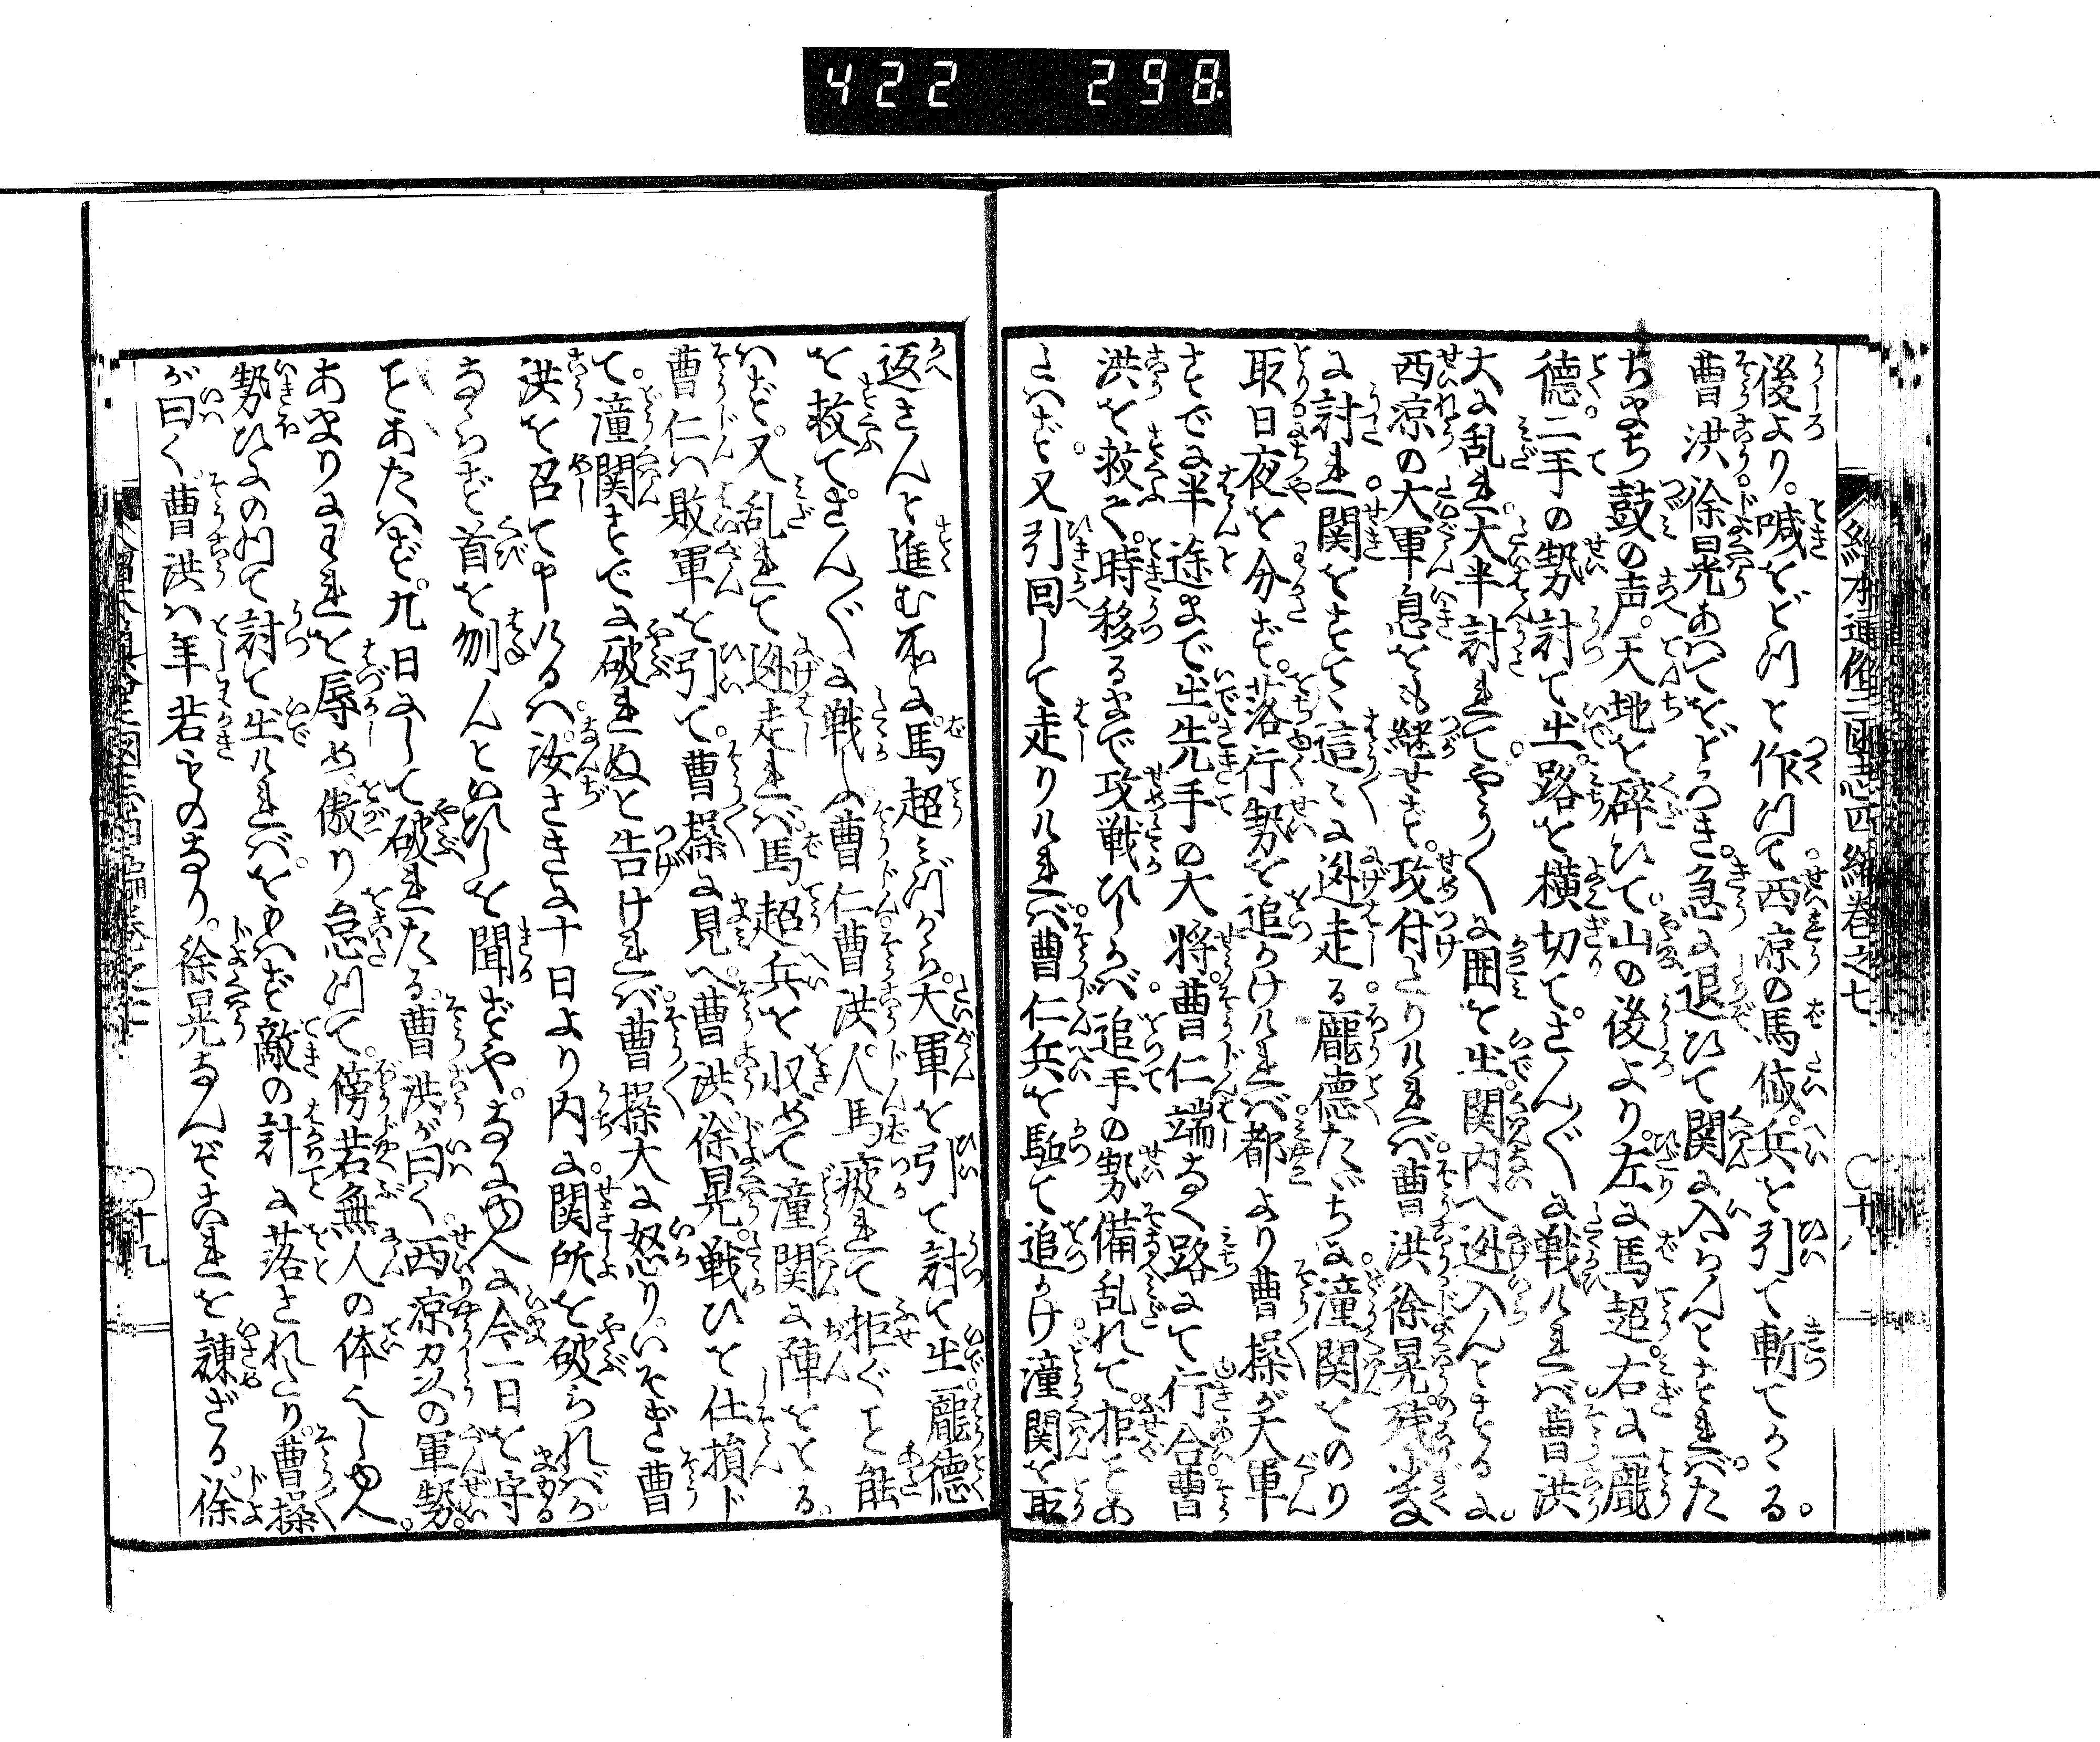 422 298
絵本通俗三国志四編巻之七 〇十八
後より。喊をどつと作つて。西涼の馬岱。兵を引て斬てかゝる。
曹洪徐晃あはてをどろき。急に退ひて関に入らんとすれば。た
ちまち鼓の声。天地を砕ひて。山の後より。左に馬超。右に龐
徳。二手の勢討て出。路を横切て。さんぐに戦ければ。曹洪
大に乱れ。大半討れて。やう〳〵に囲を出。関内へ迯入んとするに。
西凉の大軍。息をも継せず。攻付たりければ。曹洪徐晃残少な
に討れ。関をすてゝ這〻に迯走る。龐徳たゞちに。潼関をのり
取。日夜を分ず。落行勢を追かけければ。都より曹操が大軍
すでに半途まで出。先手の大将。曹仁端なく路にて行合。曹
洪を救て。時移るまで攻戦ひしかべ。追手の勢備乱れて。拒もあ
たはず。又引回して走りければ。曹仁兵を駈て追かけ。潼関を取
返さんと進む所に。馬超みづから。大軍を引て討て出。龐徳
を救てさんぐに戦ふ。曹仁。曹洪。人馬疲れて。拒ぐこと能
はず。又乱れて。迯走れば。馬超兵を収めて。潼関に陣をとる。
曹仁は敗軍を引て。曹操に見へ。曹洪徐晃。戦ひを仕損じ
て。潼関すでに破れぬと告ければ。曹操大に怒り。いそぎ曹
洪を召て申けるは。汝さきに十日より内に。関所を破られば。
ならず首を刎んといひしを聞ずや。なにゆへに今一日を守
ことあたはず。九日にして破れたる。曹洪が曰く。西凉の軍勢。
あまりにわれを辱め。傲り怠つて。傍若無人の体なりしゆへ。
勢ひにのつて討て出ければ。をもはず敵の計に落されたり。曹操
が曰く。曹洪は年若ものなり。徐晃なんぞこれを諌ざる。徐